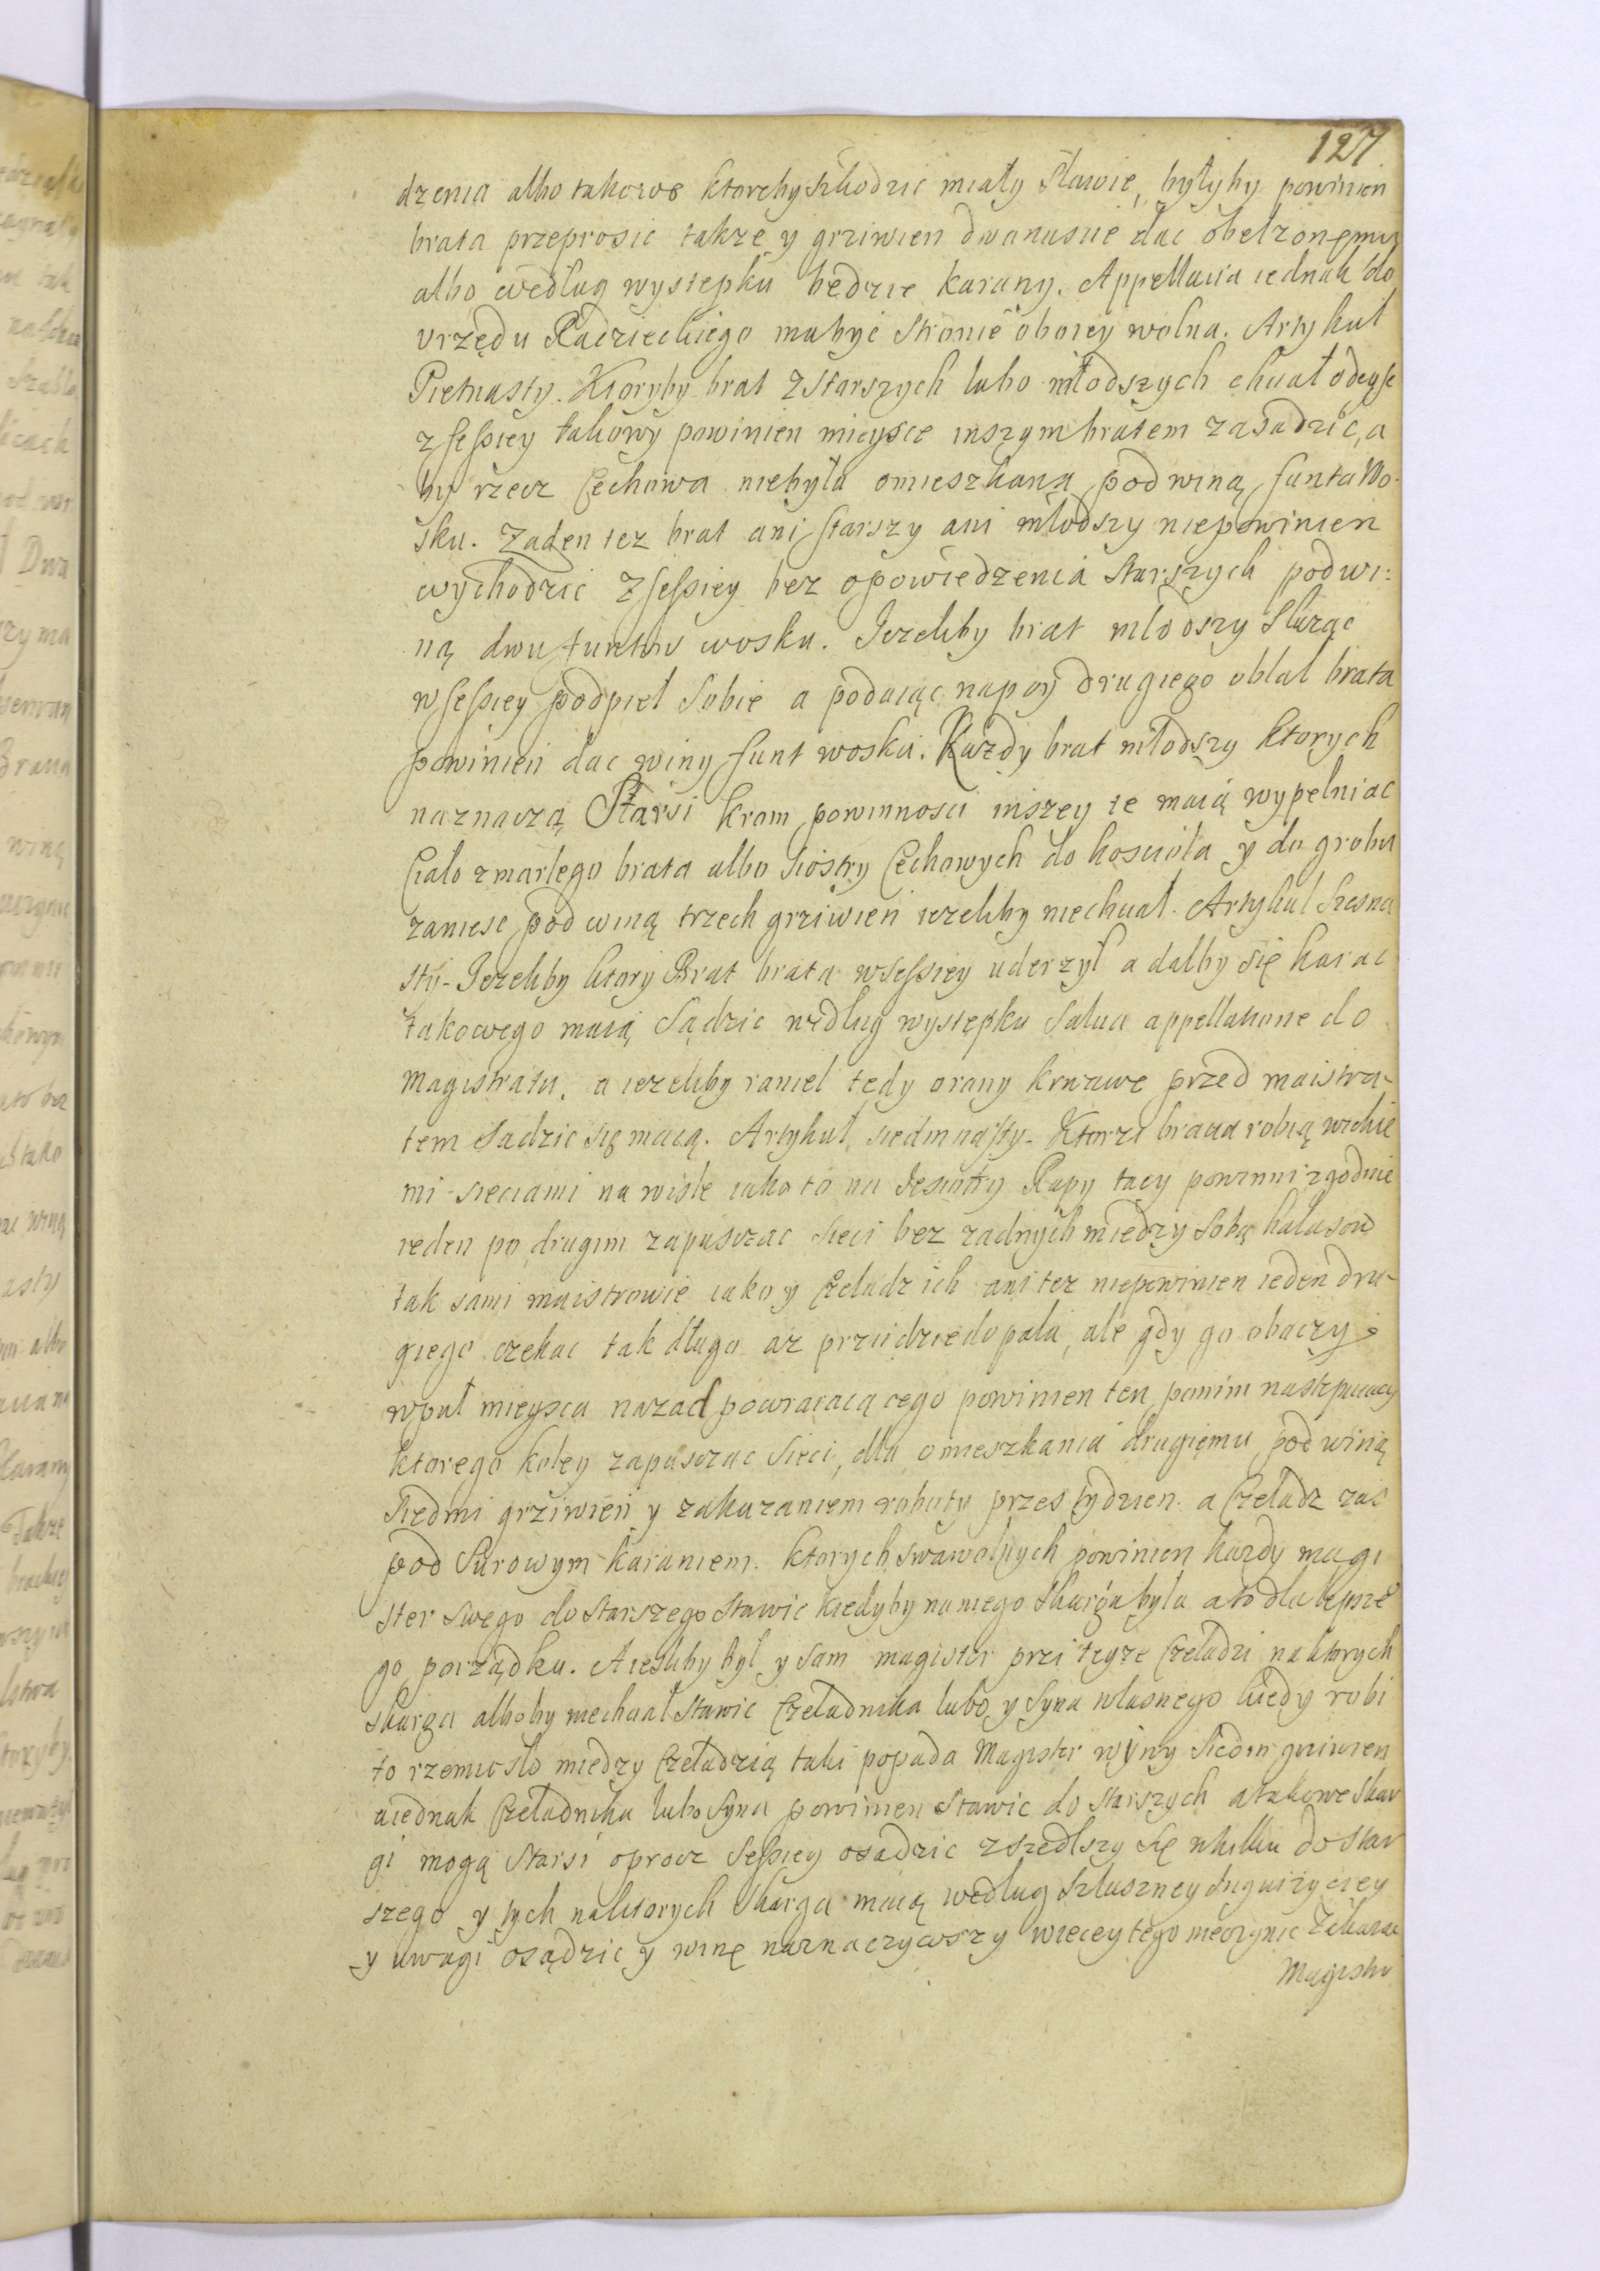 127
dzenia albo takowe ktoreby szkodzic miały sławie, byłyby powinien
brata przeprosic także y grziwien dwanascie dac obelzonemu
albo według wystepku będzie karany. Appellacia iednak do
vrzędu Radzieckiego ma byc stronie oboiey wolna. Artykuł
Pietnasty. Ktoryby brat z starszych lubo młodszych chciał odeysc
z sessiey takowy powinien mieysce inszym bratem zasadzic, a
by rzecz Cechowa niebyła omieszkana pod winą funta Wo-
sku. Zaden tez brat ani starszy ani młodszy niepowinien
wychodzic z sessiey bez opowiedzenia starszych pod wi:
ną dwu funtow wosku. Jezeliby brat młodszy sluząc
w sessiey podpieł sobie a podaiąc napoy drugiego oblał brata
powinien dac winy funt wosku. Kazdy brat młodszy ktorych
naznaczą Starsi krom powinnosci inszey te maią wypełniac
Ciało zmarłego brata albo siostry Cechowych do koscioła y do grobu
zaniesc pod winą trzech grziwien iezeliby niechciał. Artykul szesna
sty - Jezeliby ktory Brat brata w sessiey uderzył a dałby się karac
takowego maią sądzic według wystepku salua appellatione do
magistratu. a iezeliby raniel tedy o rany krwawe przed maistra-
tem sadzic się maią. Artykuł siedmnasty - Ktorzi bracia robią wielkie
mi sieciami na wisle iako to na Jesiotry Rapy tacy powinni zgodnie
ieden po drugim zapusczac sieci bez zadnych miedzy sobą hałasow
tak sami maistrowie iako y Czeladz ich ani tez niepowinien ieden dru-
giego czekac tak długo az przidzie do pala, ale gdy go obaczy
w puł mieysca nazad powracaiącego powinien ten ponim następuiący
ktorego koley zapusczac sieci, dla omieszkania drugiemu pod winą
siedmi grziwien y zakazaniem roboty przes tydzien. a Czeladz zas
pod surowym karaniem. ktorych swawolnych powinien kazdy magi
ster swego do starszego stawic kiedyby na niego skarga była a to dla lepsze
go porządku. A iesliby był y sam magister przi teyze Czeladzi na ktorych
skarga alboby niechciał stawic Czeladnika lubo y syna własnego kiedy robi
to rzemiosło miedzy Czeladzią taki popada Magister winy siedm grziwien
a iednak Czeladnika lubo syna powinien stawic do starszych a takowe skar
gi mogą starsi oprocz sessiey osadzic zszedłszy się w kilku do star
szego y tych na ktorych skarga maią według szluszney
y uwagi osądzic y winę naznaczywszy wiecey tego nieczynic
Magistro